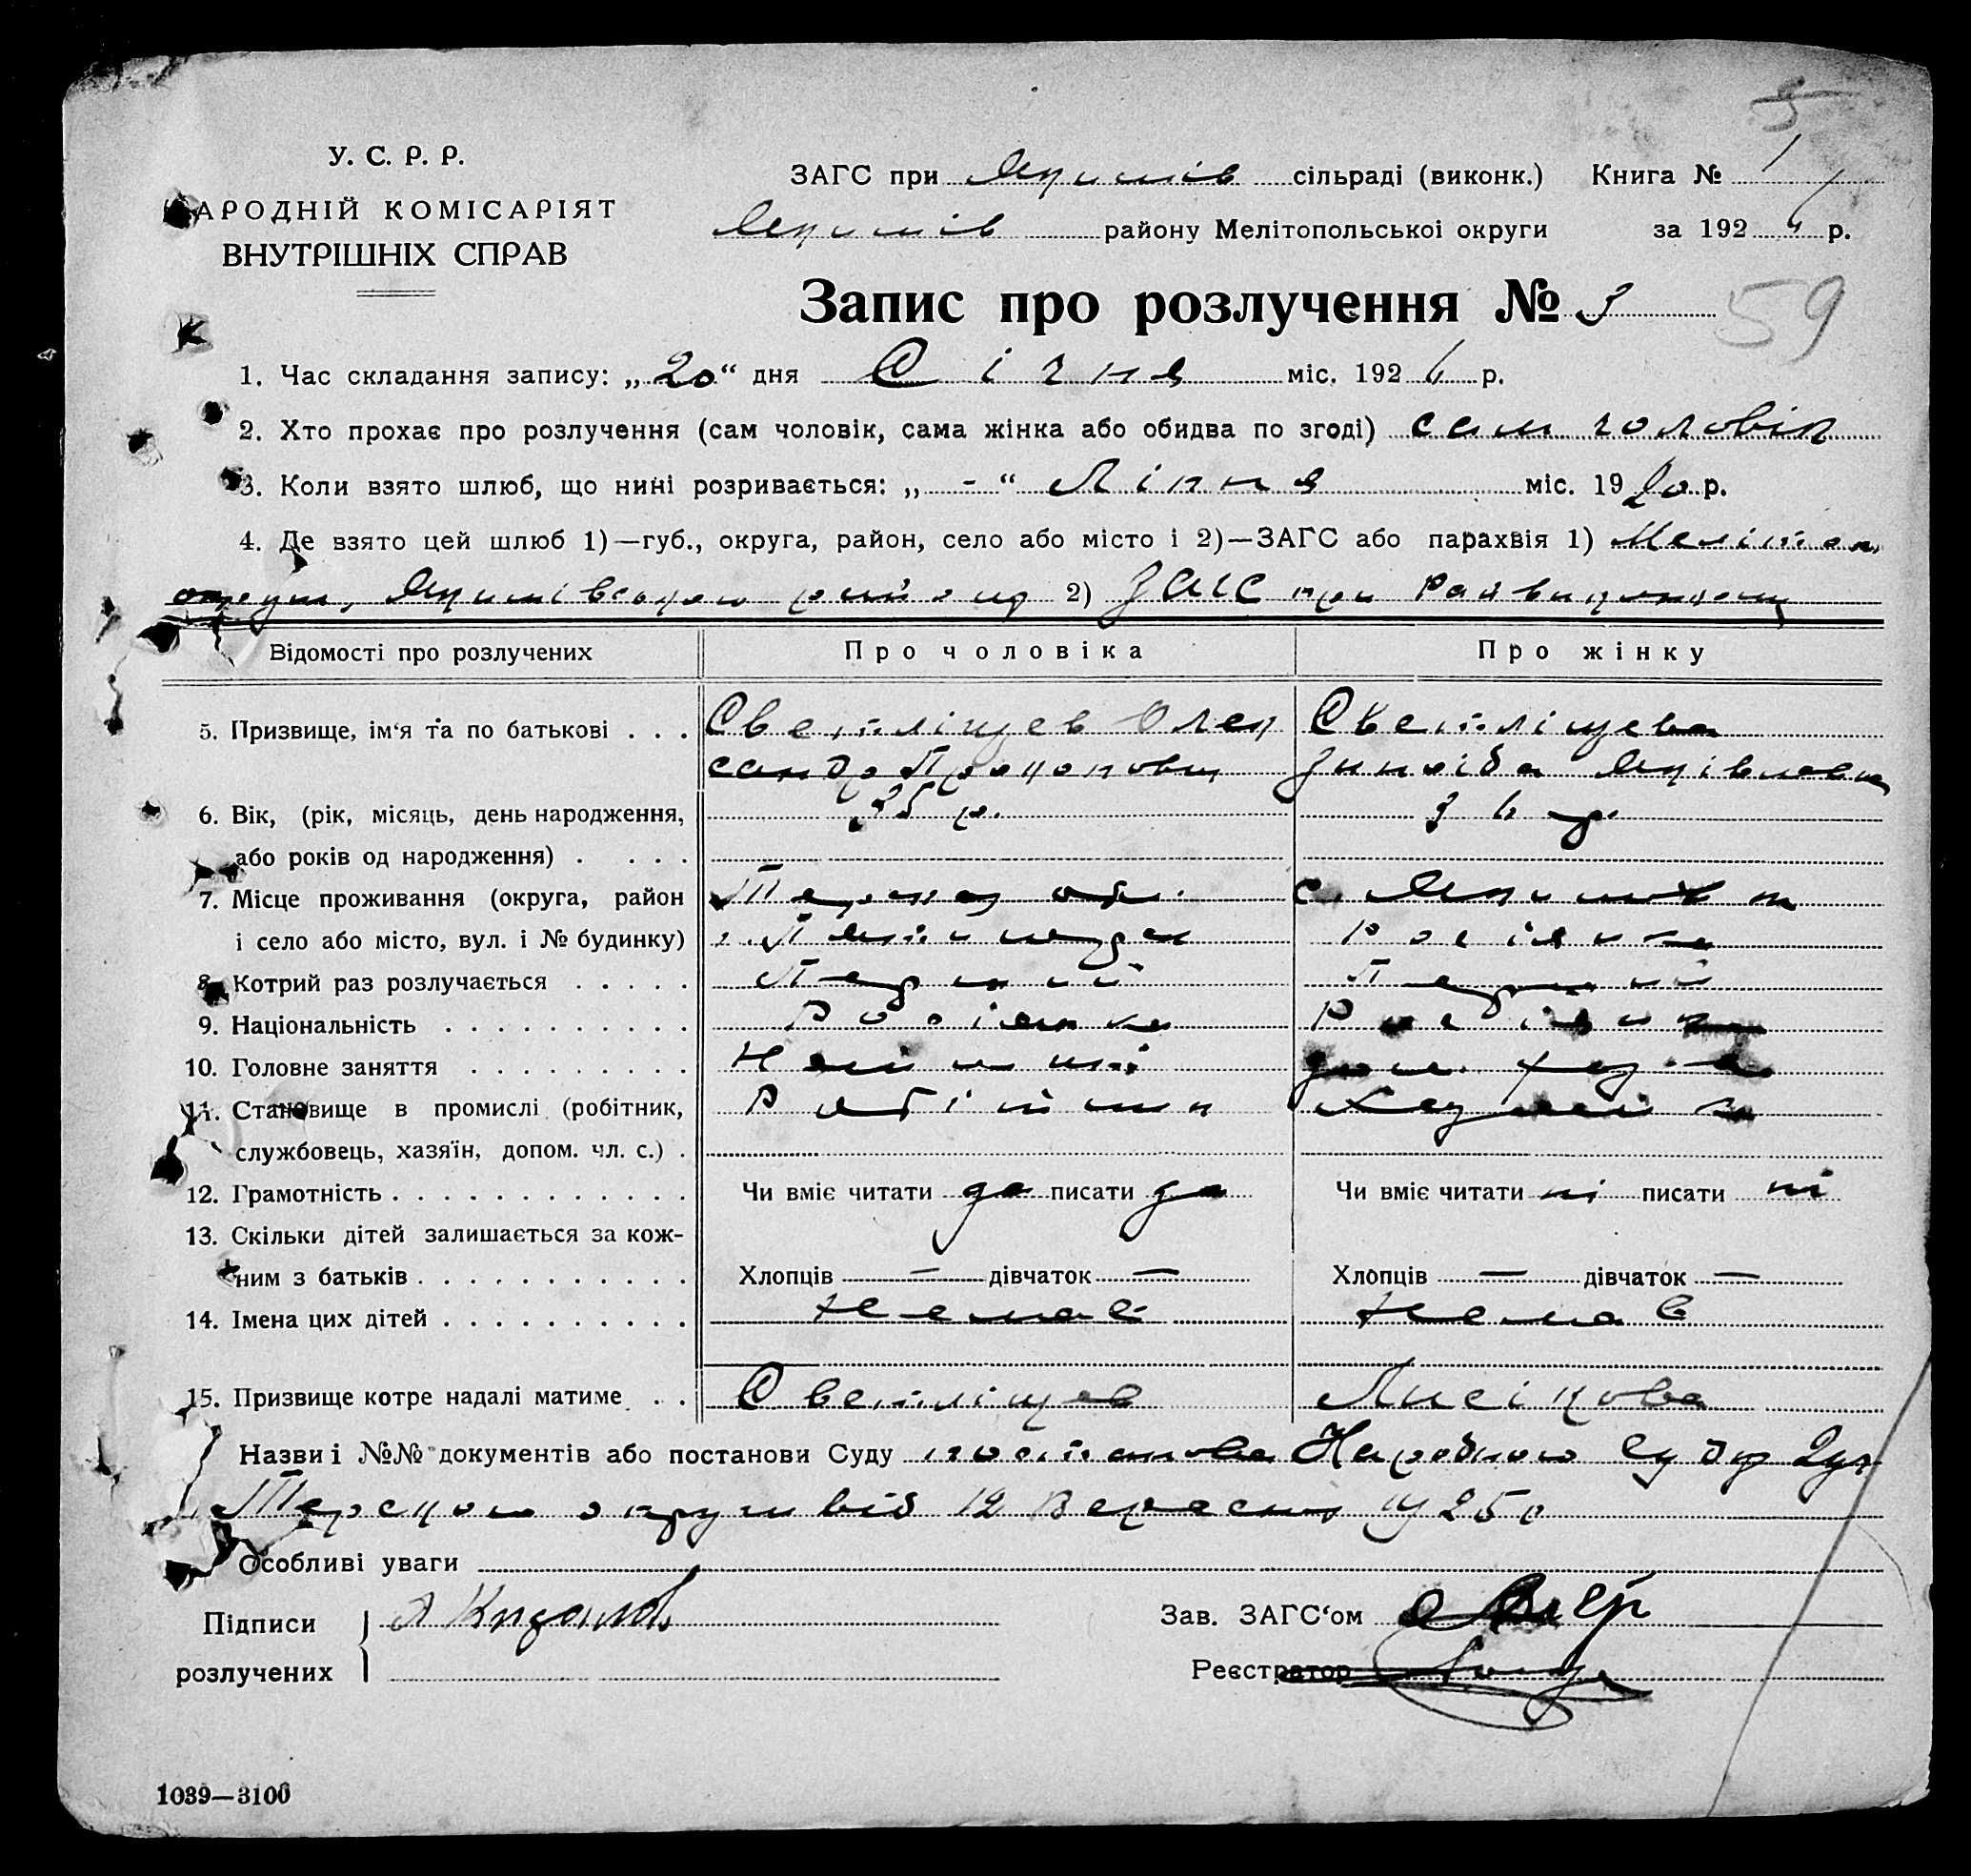 5
У. С. Р. Р.
НАРОДНІЙ КОМІСАРІЯТ
ВНУТРІШНІХ СПРАВ
ЗАГС при Якимів сільраді (виконк.) Книга № 1
Якимів району Мелітопольської округи за 1926 р.
Запис про розлучення № 3
59
1. Час складання запису: „20“ дня Січня міс. 1926 р.
2. Хто прохає про розлучення (сам чоловік, сама жінка або обидва по згоді) сам чоловік
3. Коли взято шлюб, що нині розривається: „-“ Ліпня міс. 1920 р.
4. Де взято цей шлюб 1)—губ., округа, район, село або місто і 2)—ЗАГС або парахвія 1) Мелітоп.
округи, Якимівського району 2) ЗАГС при Райвиконкомі
Відомості про розлучених Про чоловіка Про жінку
5. Призвище, ім‘я та по батькові . . . Светліщев Олек Светліщева
сандр Яківловна
6. Вік, (рік, місяць, день народження, 35 р. 36 р.
або років од народження) . . . .
7. Місце проживання (округа, район с. Якимовка
і село або місто, вул. і № будинку)
8. Котрий раз розлучається . . . . . Первий Первий
9. Національність . . . . . . . . . .
10. Головне заняття . . . . . . . . .
11. Становище в промислі (робітник, Робітник
службовець, хазяїн, допом. чл. с.) .
12. Грамотність . . . . . . . . . . . . . Чи вміє читати да писати да Чи вміє читати ні писати ні
13. Скільки дітей залишається за кож-
ним з батьків . . . . . . . . . . . . Хлопців — дівчаток — Хлопців — дівчаток —
14. Імена цих дітей . . . . . . . . . . Немає Немає
15. Призвище котре надалі матиме . . . Светліщев Лисікова
Назви і №№ документів або постанови Суду постанова Народного Суду 2 уч
Терского округи від 12 Вересня 1925 р
Особливі уваги
Підписи
розлучених
Зав. ЗАГС‘ом
Реєстратор
1039—3100